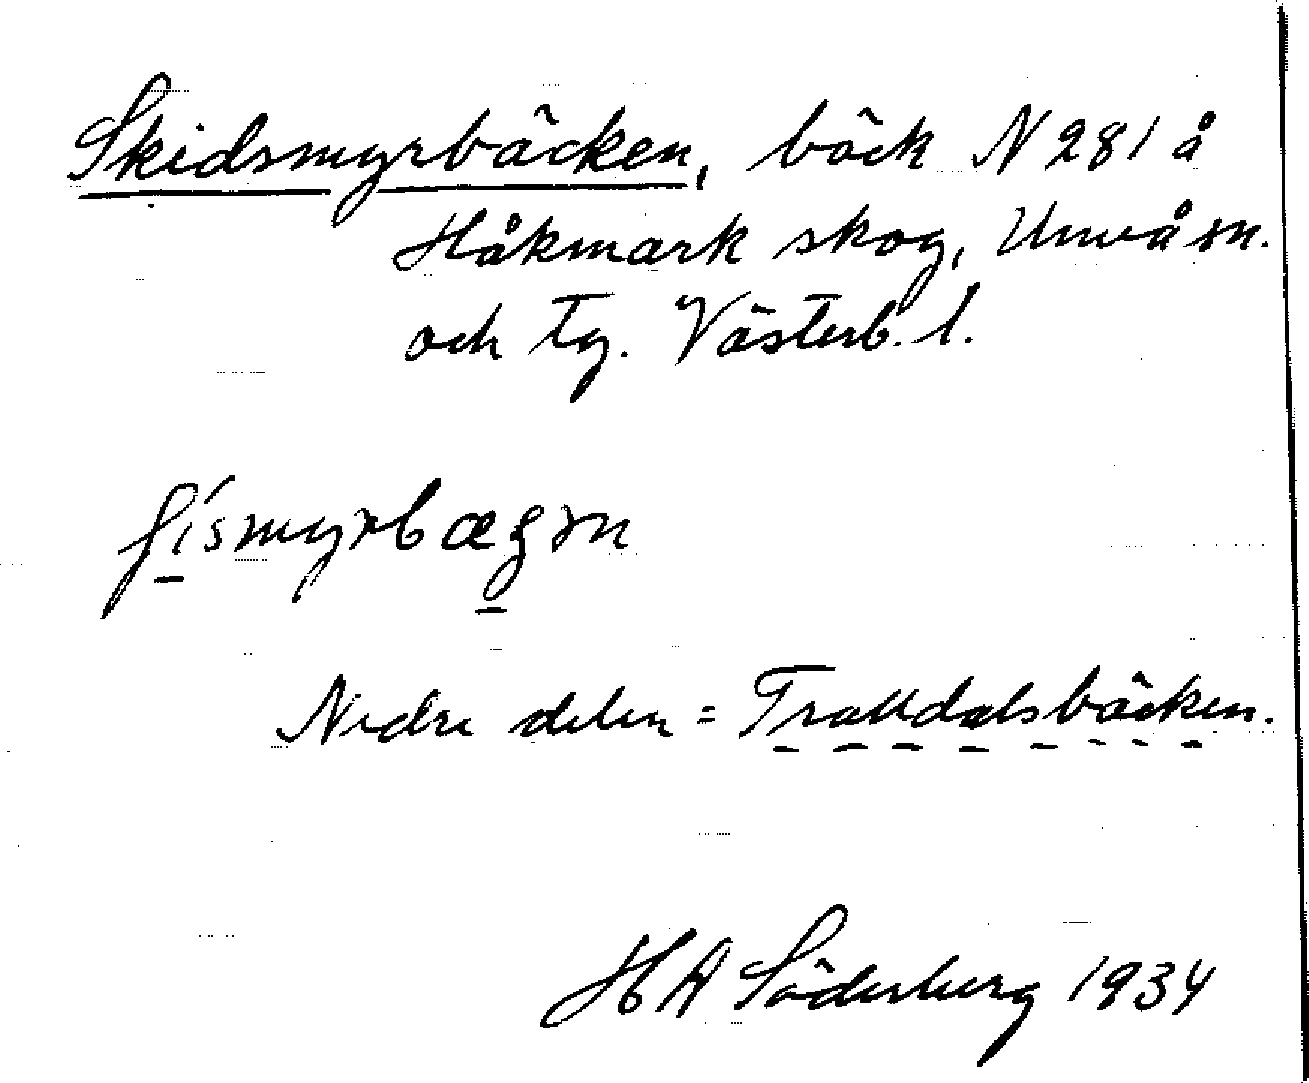 Skidsmyrbäcken, bäck N 281 å
Håkmark skog, Umeå sn.
och tg. Västerb. l.
Nedre delen = Tralldalsbäcken.
HA Söderberg 1934